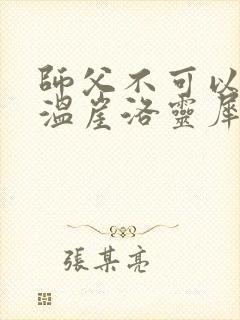 師父不可以
溫崖洛靈犀
張某亮